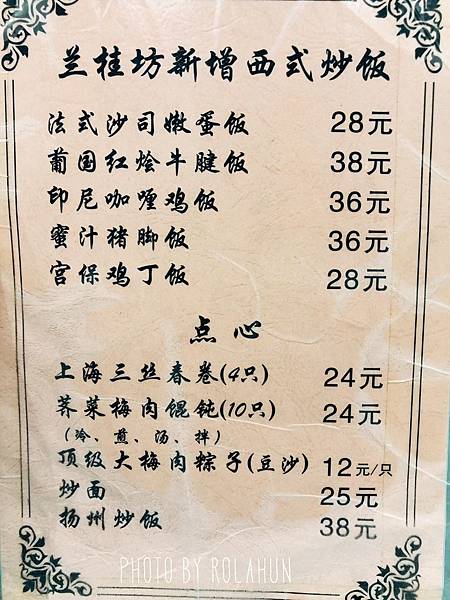 兰桂坊新增西式炒饭
法式沙司嫩蛋饭 28元
葡国红烩牛腱饭 38元
印尼咖喱鸡饭 36元
蜜汁猪脚饭 36元
宫保鸡丁饭 28元
点心
上海三丝春卷(4只) 24元
荠菜梅肉馄饨(10只) 24元
(冷、煎、汤、拌)
顶级大梅肉粽子(豆沙) 12元/只
炒面 25元
扬州炒饭 38元
PHOTO BY ROLAHUN